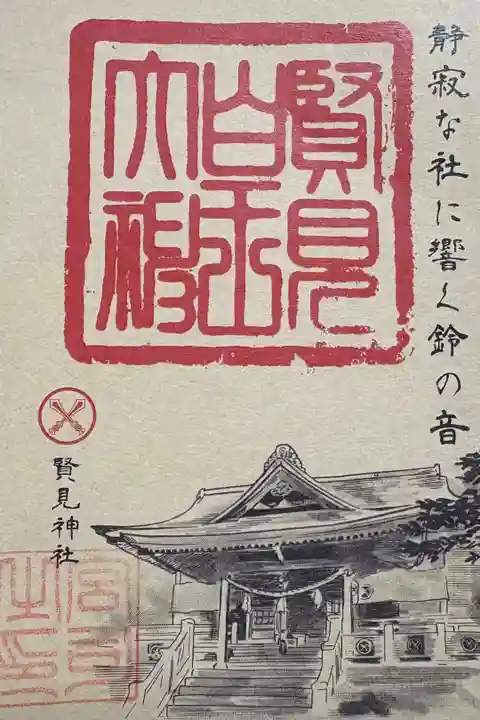 静寂な社に響く鈴の音
賢見
皇
大神
賢見神社
宮司
之印